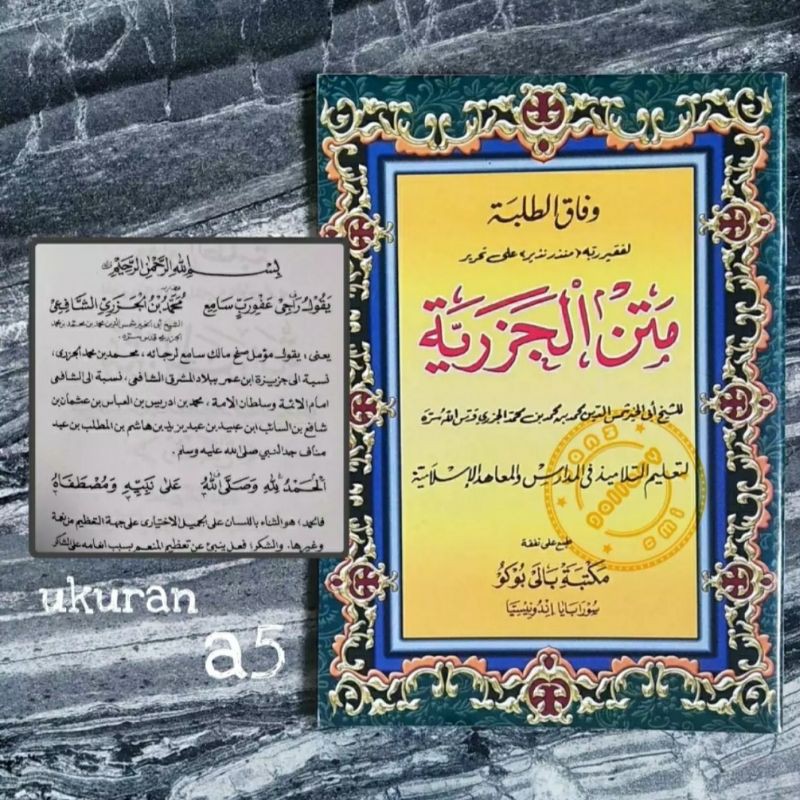 وفاق الطلبة
لفقير ربه «منذر نذير» على تحرير
متن الجزرية
للشيخ أبى الخير شمس الدين محمد بن محمد بن محمد الجزري قدس الله سره
لتعليم التلاميذ فى المدارس والمعاهد الإسلامية
طبع على نفقة
مكتبة بالى بوكو
سورابايا إندونيسيا
بسم الله الرحمن الرحيم
يقول راجى عفو رب سامع محمد بن الجزرى الشافعى
يعنى، يقول مؤمل صفح مالك سامع لرجائه، محمد بن محمد الجزرى،
نسبة الى جزيرة ابن عمر ببلاد المشرق الشافعى، نسبة الى الشافعى
امام الائمة وسلطان الامة، محمد بن ادريس بن العباس بن عثمان بن
شافع بن السائب ابن عبيد بن عبد يزيد بن هاشم بن المطلب بن عبد
مناف جد النبي صلى الله عليه وسلم.
الحمد لله وصلى الله على نبيه ومصطفاه
فالحمد، هو الثناء باللسان على الجميل الاختيارى على جهة التعظيم من نعمة
وغيرها. والشكر، فعل ينبئ عن تعظيم المنعم بسبب انعامه على الشاكر
ukuran
a5